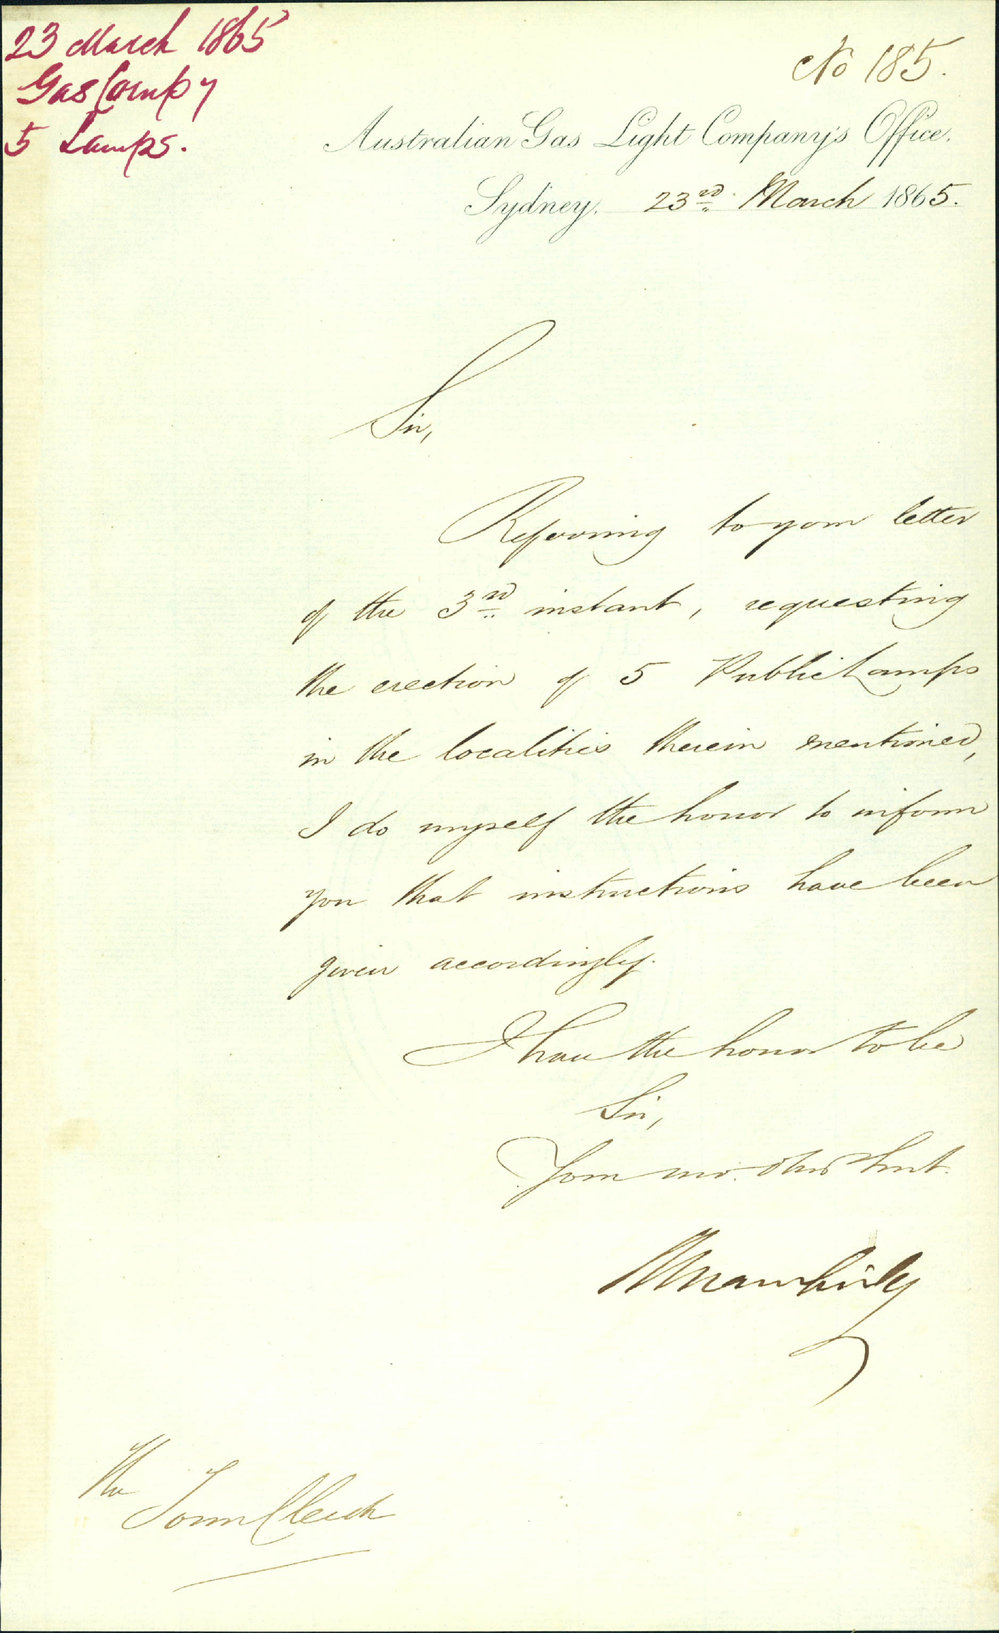 23 March 1865
Gas Comp'y
5 Lamps.
No 185.
Australian Gas Light Company's Office.
Sydney, 23rd March 1865.
Sir,
Referring to your letter
of the 3rd instant, requesting
the erection of 5 Public Lamps
in the localities therein mentioned,
I do myself the honor to inform
you that instructions have been
given accordingly.
I have the honor to be
Sir,
Your mo. obd Servt.
The
Town Clerk